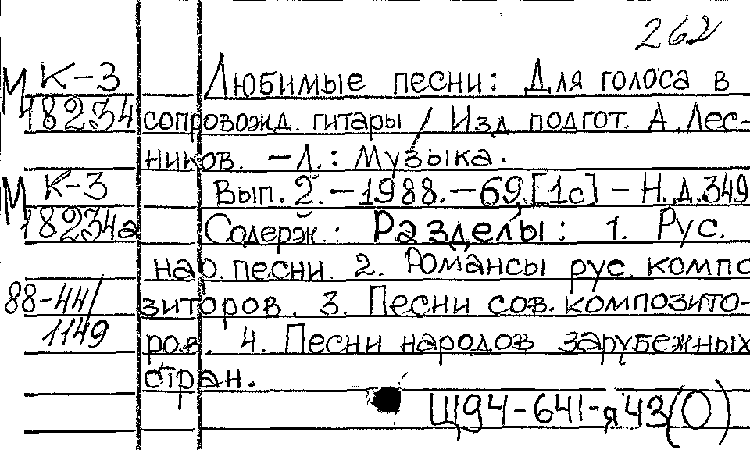 262
М К-3 Любимые песни: Для голоса в
18234 сопровожд. гитары / Изд. подгот. А. Лес-
ников. – Л.: Музыка.
М К-3 Вып. 2. – 1988. – 69,[1с] – Н.д.349
18234а Содерж.: Разделы: 1. Рус.
нар. песни. 2. Романсы рус. компо
88-44/ зиторов. 3. Песни сов. композито-
1149 ров. 4. Песни народов зарубежных
стран.
Щ94-641-я43(0)